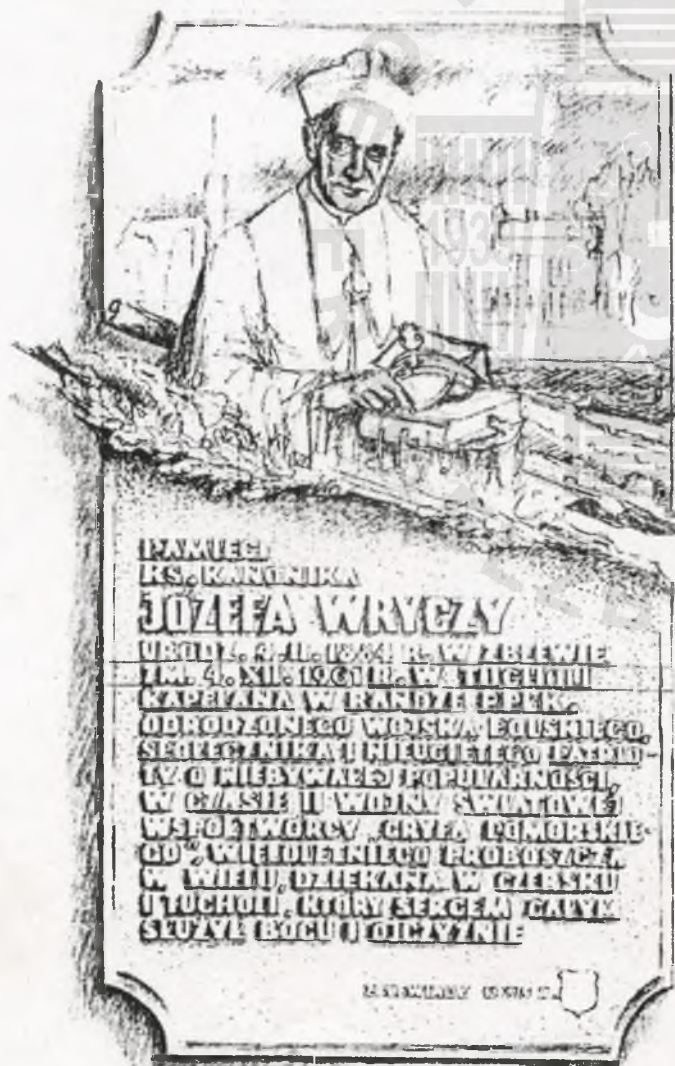 PAMIĘCI
KS. KANONIKA
JÓZEFA WRYCZY
URODZ. 4.II.1884 R. W ZBLEWIE
ZM. 4.XII.1961 R. W TUCHOLI
KAPELANA W RANDZE PPŁK.
ODRODZONEGO WOJSKA POLSKIEGO,
SPOŁECZNIKA I NIEUGIĘTEGO PATRIO-
TY O NIEBYWAŁEJ POPULARNOŚCI,
W CZASIE II WOJNY ŚWIATOWEJ
WSPÓŁTWÓRCY „GRYFA POMORSKIE-
GO”, WIELOLETNIEGO PROBOSZCZA
W WIELU, DZIEKANA W CZERSKU
I TUCHOLI, KTÓRY SERCEM CAŁYM
SŁUŻYŁ BOGU I OJCZYŹNIE